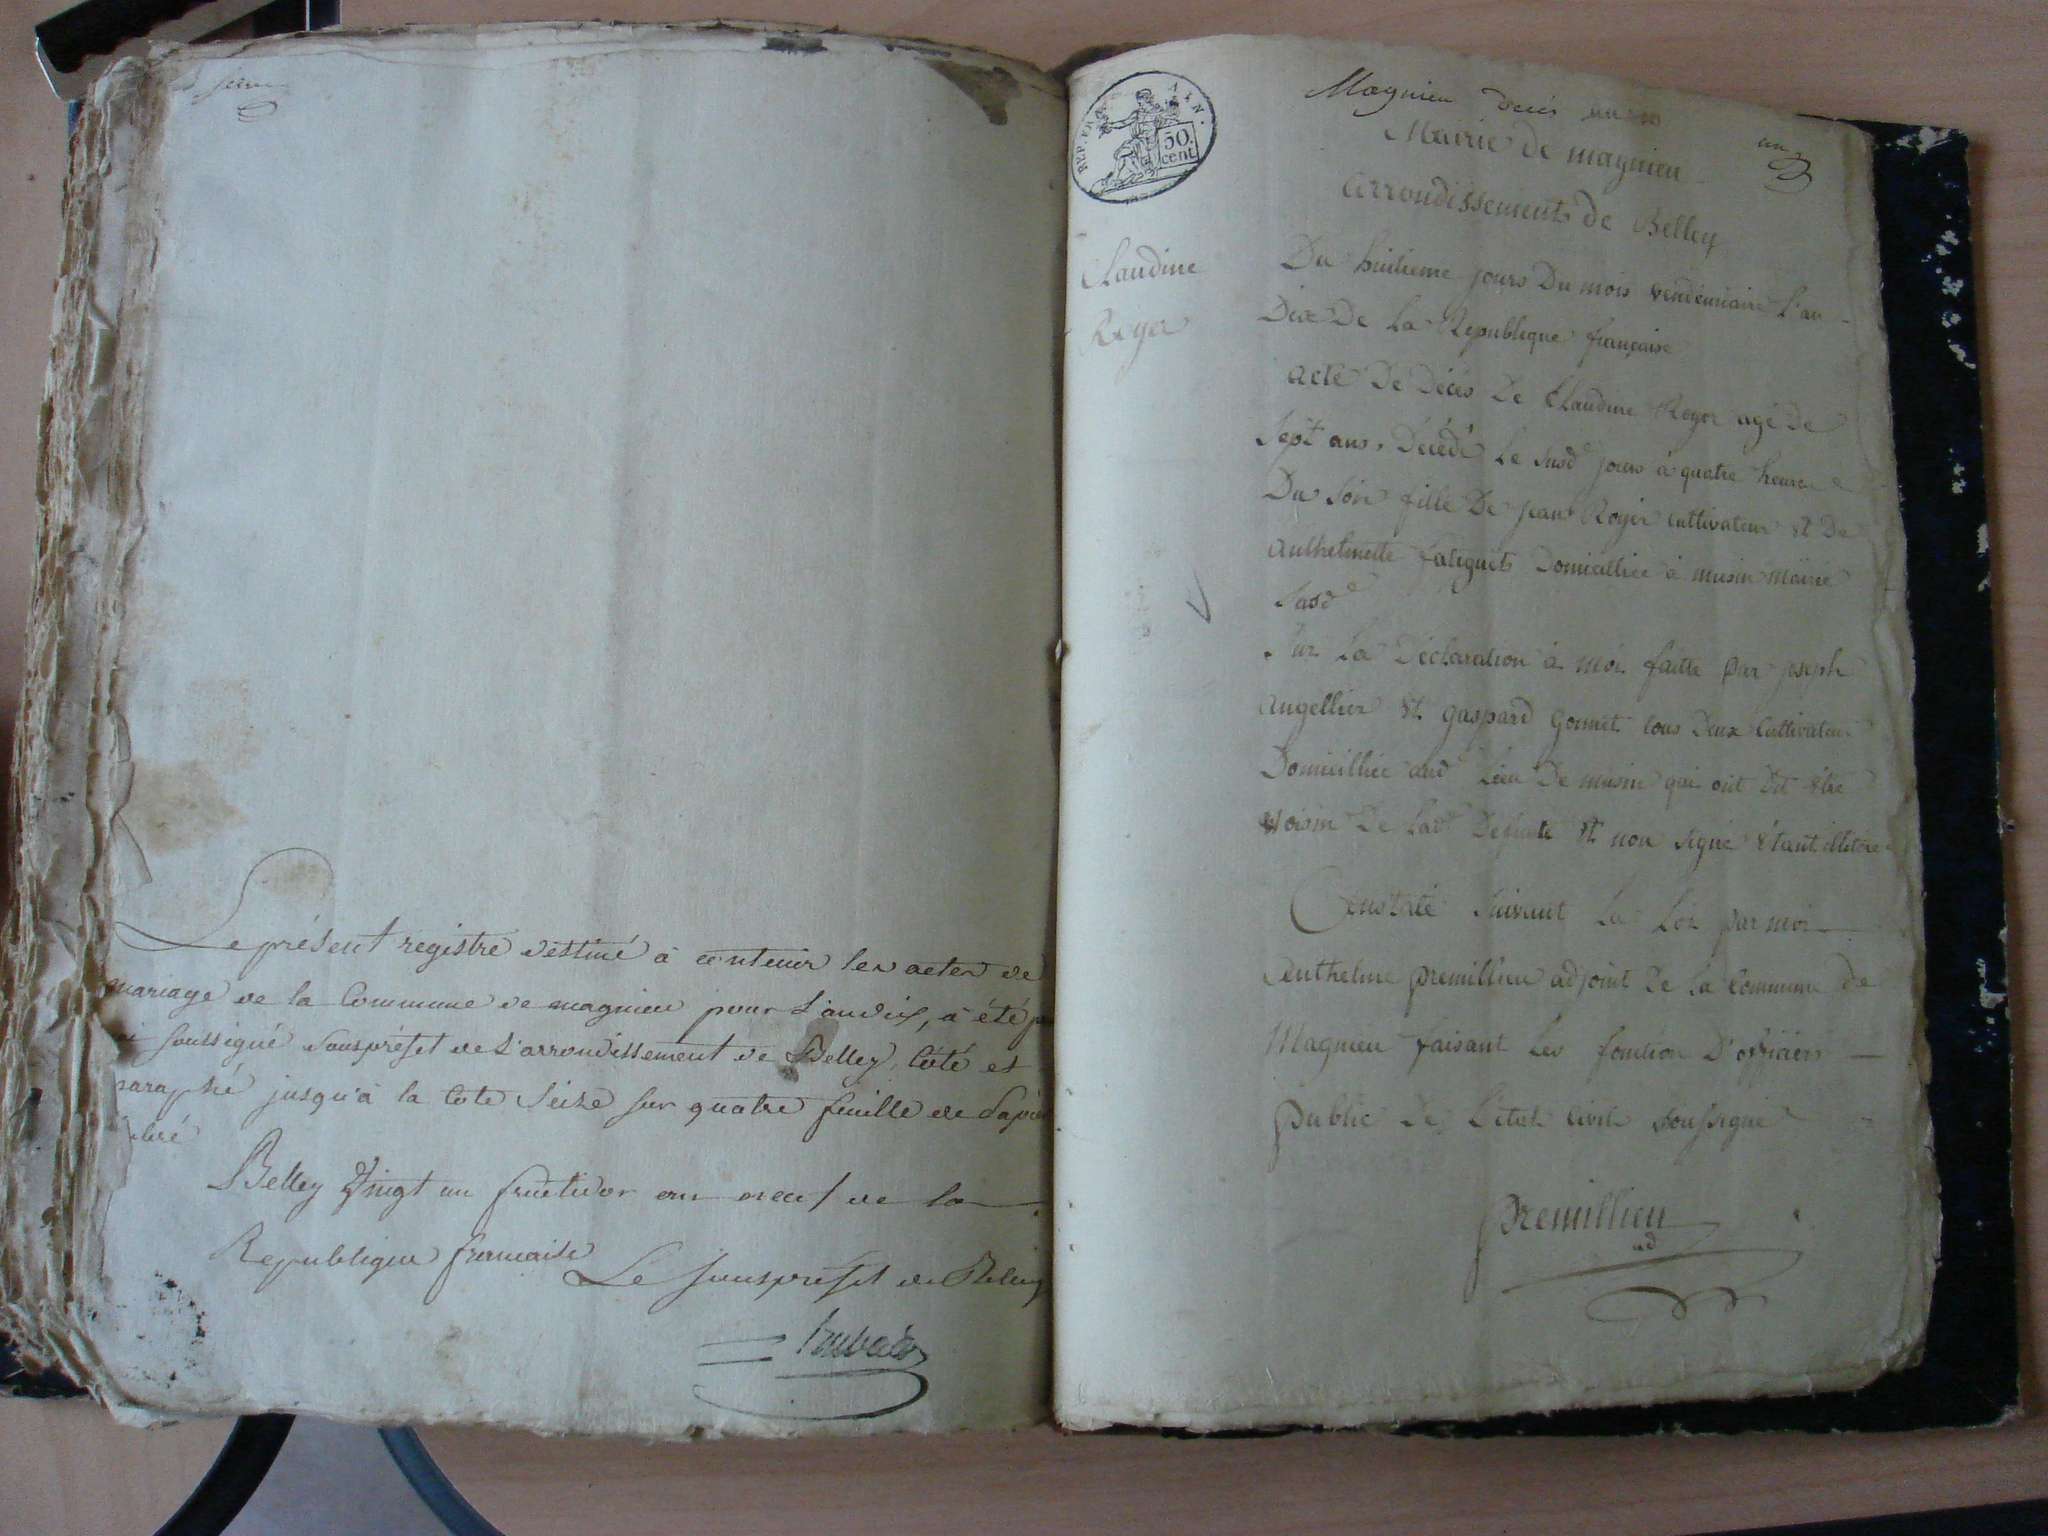 Le présent registre destiné à contenir les actes de
mariage de la Commune de magnieu pour L'an dix, a été
soussigné souspréfet de L'arrondissement de Belley, Coté et
paraphé jusqu'à la Cote Seize sur quatre feuille de Papier
Belley Vingt un fructidor an neuf de la
Republique francaise
Le souspréfet de Belley
REP. FRA. AIN.
50 cent.
Magnieu décès an 10
un
Mairie de magnieu
arrondissement de Belley
Claudine
Roger
Du huitieme jours Du mois vendémiaire L'an
Dix De La Republique française
acte De Décès De Claudine Roger agé De
Sept ans, Décédé Le susd jours à quatre heures
Du Soir fille De jean Roger cultivateur et De
anthelmette faliquet Domicilliée à musin mairie
susd
Sur La Déclaration à moi faitte par joseph
angellier et gaspard gonnet tous Deux Cultivateur
Domicilliée aud Lieu De musin qui ont Dit être
voisin De Lad Defunte et non signé étant illétére
Constaté Suivant La Loi par moi
anthelme premillieu adjoint De La Commune de
Magnieu faisant Les fonction D'officiers
public De L'état Civil soussigné
premillieu
ad